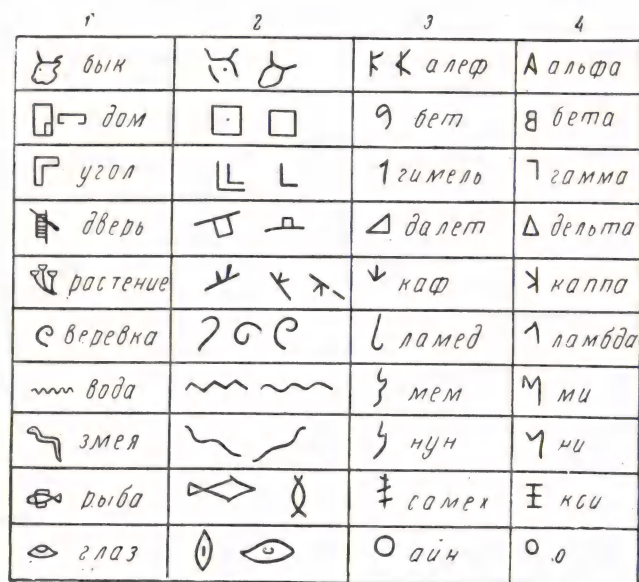 1 2 3 4
бык алеф альфа
дом бет бета
угол гимель гамма
дверь далет дельта
растение каф каппа
веревка ламед ламбда
вода мем ми
змея нун ни
рыба самех кси
глаз айн о